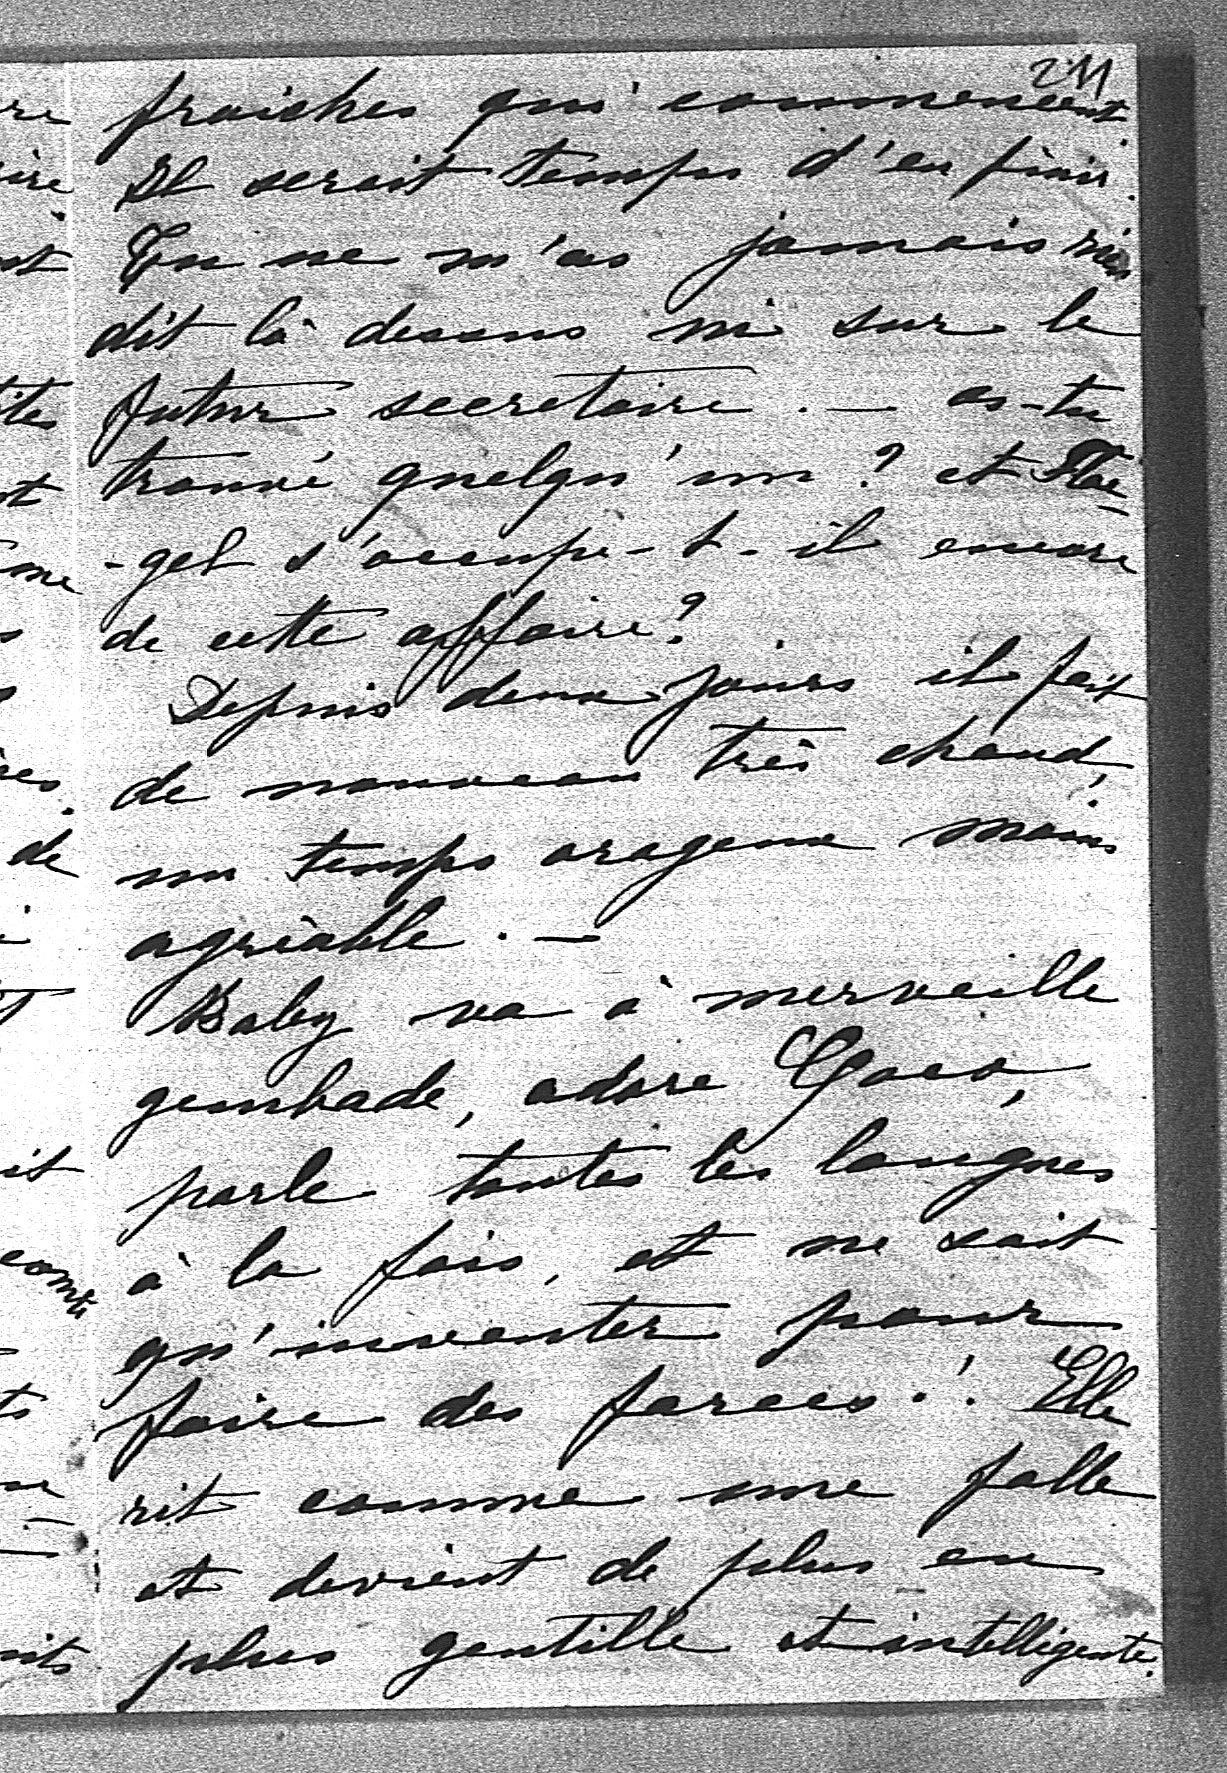 211
fraiches qui commencent.
Il serait temps d'en finir.
Tu ne m'as jamais rien
dit là dessus ni sur le
futur secretaire. — as-tu
trouvé quelqu'un? et
-gel s'occupe-t-il encore
de cette affaire?
Depuis deux jours il fait
de nouveau très chaud,
un temps orageux moins
agréable. —
Baby va à merveille
gembade, adore Coco,
parle toutes les langues
à la fois, et ne sait
qu'inventer pour
faire des farces! Elle
rit comme une folle
et devient de plus en
plus gentille et intelligente.